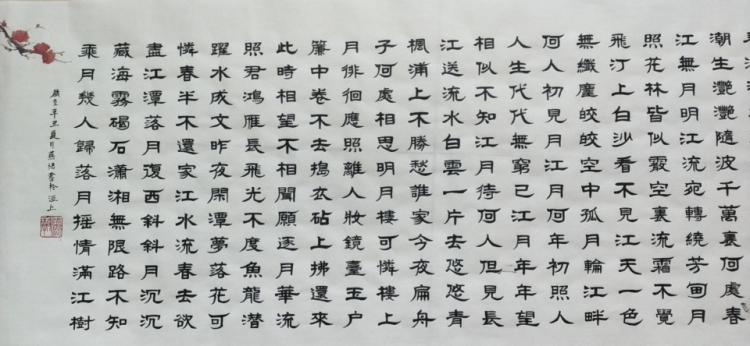 潮生灩灩隨波千萬裏何處春
江無月明江流宛轉繞芳甸月
照花林皆似霰空裏流霜不覺
飛汀上白沙看不見江天一色
無纖塵皎皎空中孤月輪江畔
何人初見月江月何年初照人
人生代代無窮已江月年年望
相似不知江月待何人但見長
江送流水白雲一片去悠悠青
楓浦上不勝愁誰家今夜扁舟
子何處相思明月樓可憐樓上
月徘徊應照離人妝鏡臺玉户
簾中卷不去搗衣砧上拂還來
此時相望不相聞願逐月華流
照君鴻雁長飛光不度魚龍潛
躍水成文昨夜閑潭夢落花可
憐春半不還家江水流春去欲
盡江潭落月復西斜斜月沉沉
藏海霧碣石瀟湘無限路不知
乘月幾人歸落月搖情滿江樹
歲在辛丑夏月書於滬上